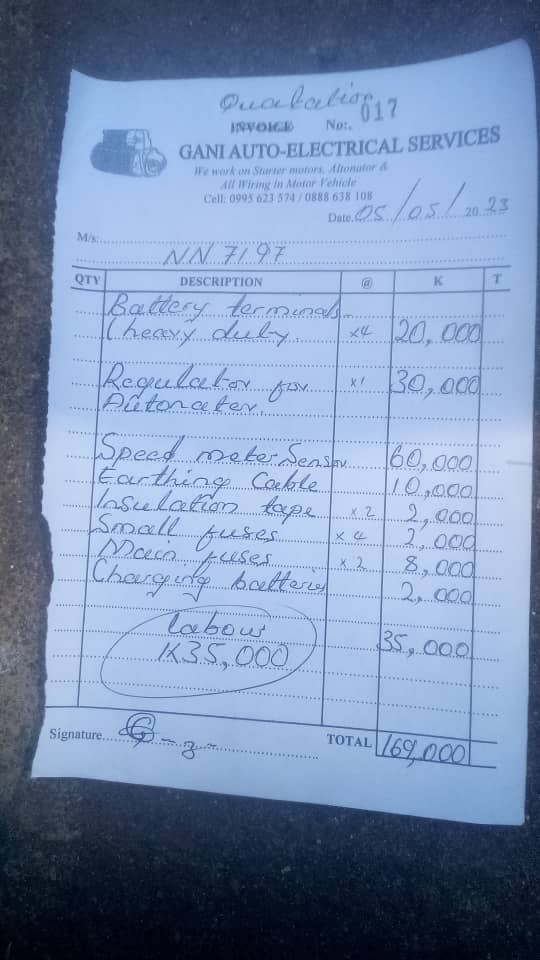 Quatation
INVOICE No:. 017
GANI AUTO-ELECTRICAL SERVICES
We work on Starter motors, Altonator &
All Wiring in Motor Vehicle
Cell: 0995 623 574 / 0888 638 108
Date 05/05/2023
M/s:
NN 7197
QTY DESCRIPTION @ K T
Battery terminals
(heavy duty x4 20,000
Regulator for x1 30,000
Autonater
Speed meter Sensor 60,000
Earthing Cable 10,000
Insulation tape x2 2,000
Small fuses x4 2,000
Main fuses x2 8,000
Charging batteries 2,000
labour 35,000
K35,000
Signature TOTAL 169,000